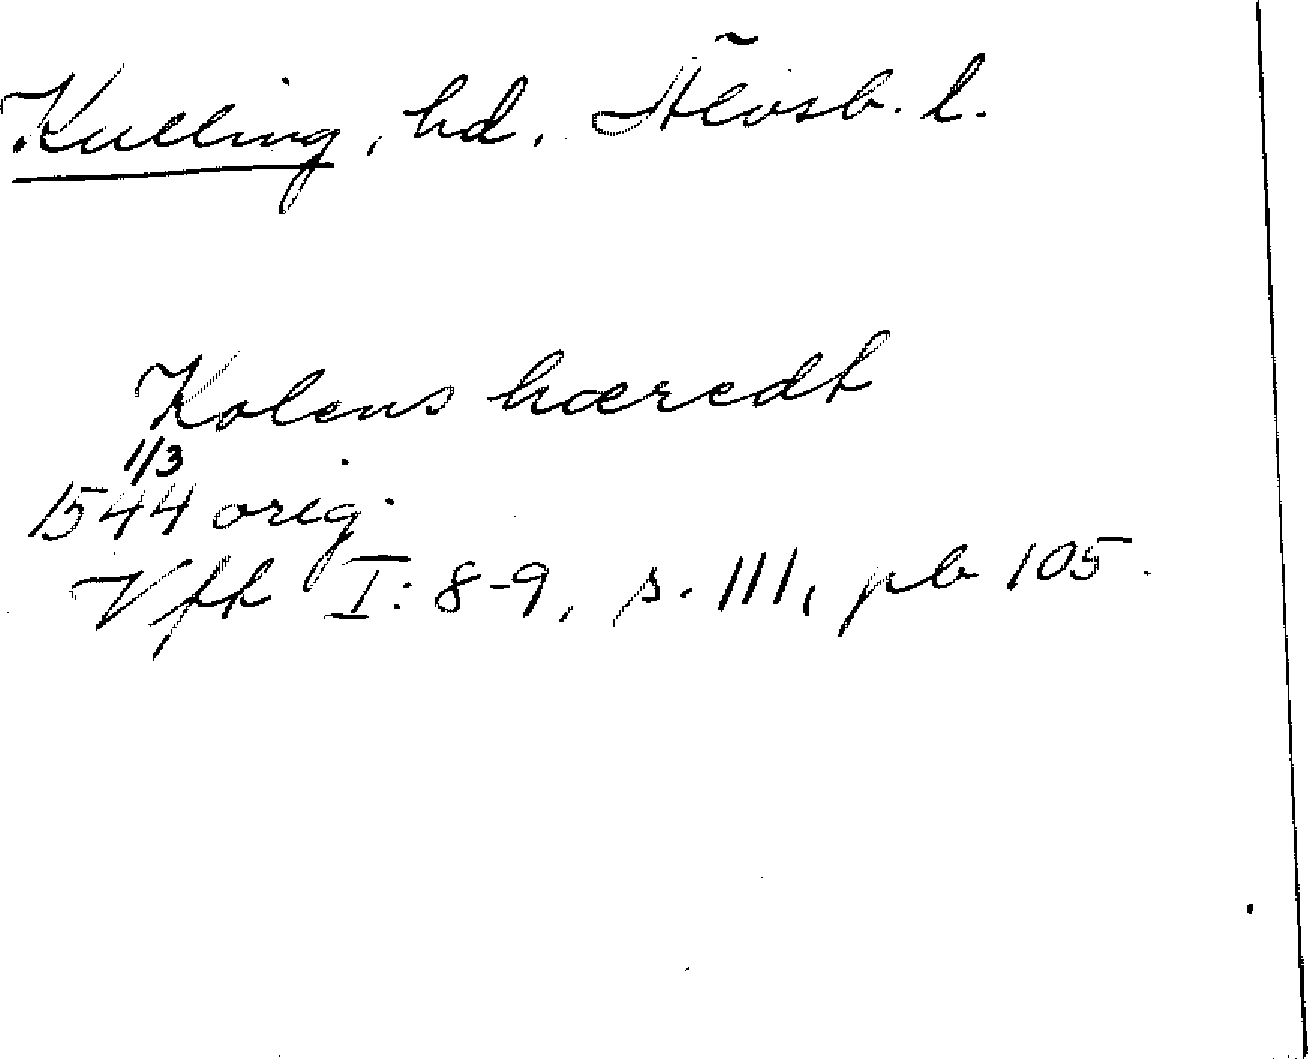 Kulling, hd, Älvsb. l.
Kolens hæredt
1/3
1544 orig.
Vfh I: 8-9, s. 111, pb 105.